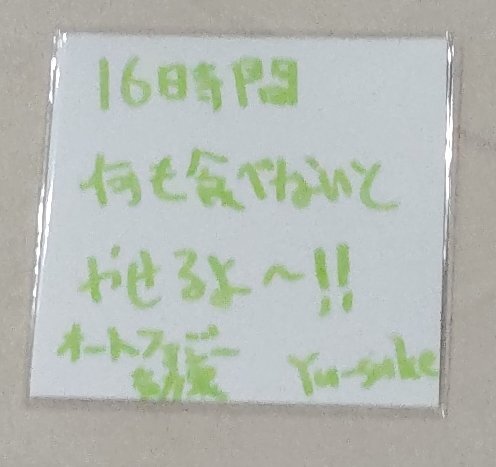 16時間
何も食べないと
やせるよ〜!!
オートファジー
効果
Yu-suke